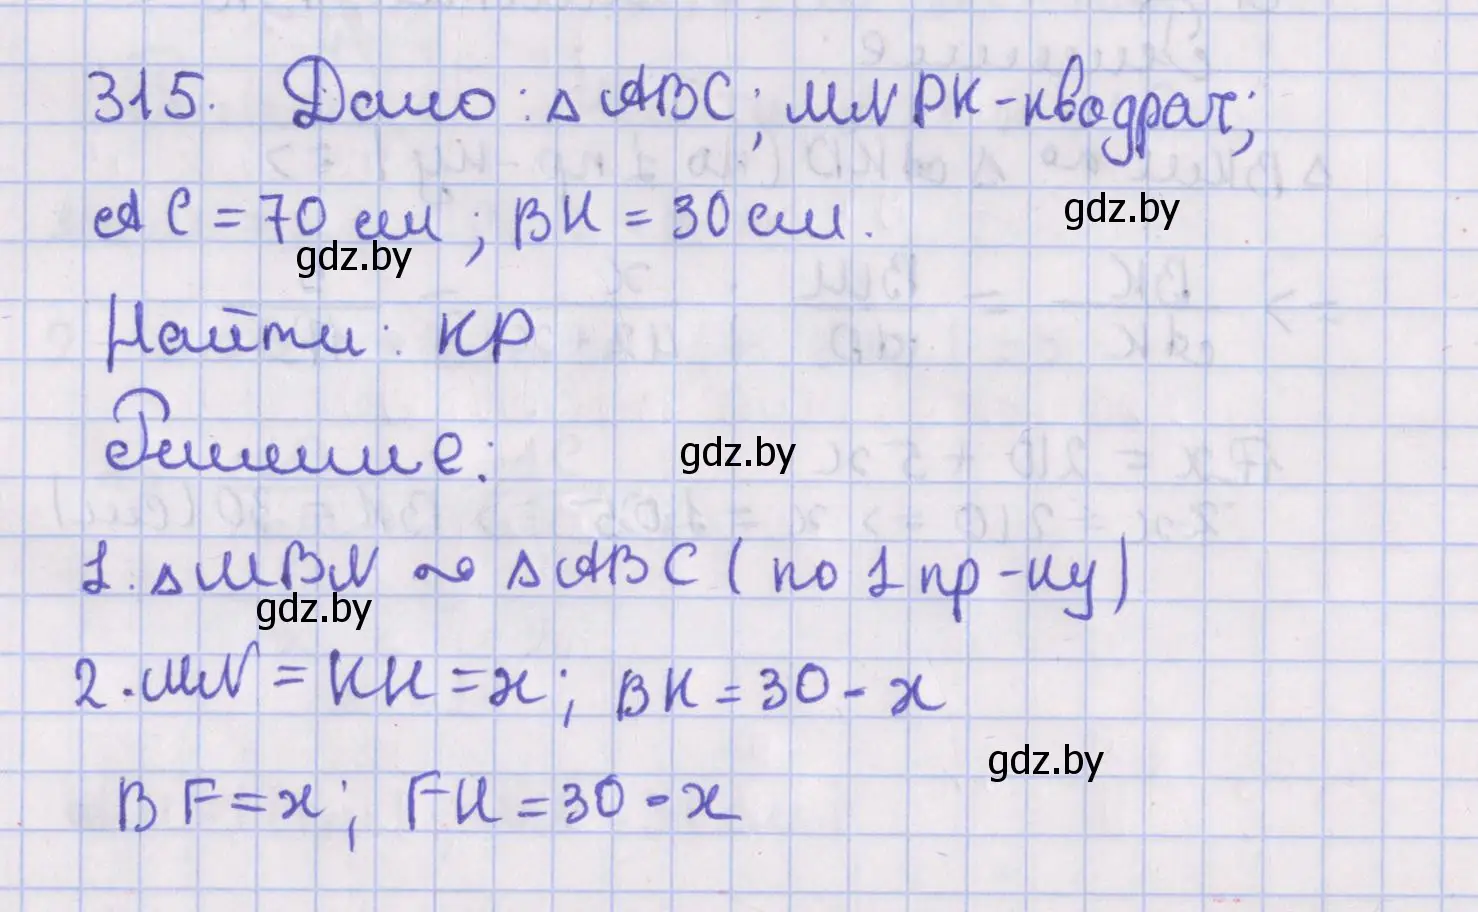 315. Дано: △ABC; MNPK-квадрат;
AC = 70 см; BH = 30 см.
gdz.by
gdz.by
Найти: KP
Решение:
gdz.by
1. △MBN ~ △ABC (по 1 пр-ку)
gdz.by
2. MN = KH = x; BK = 30 - x
gdz.by
BF = x; FH = 30 - x